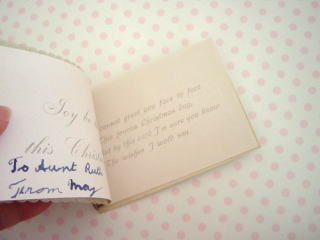 Joy be
this Christ
To Aunt Ruth
From May
cannot greet you face to face
This joyous Christmas Day,
But by this card I'm sure you know
The wishes I would say.